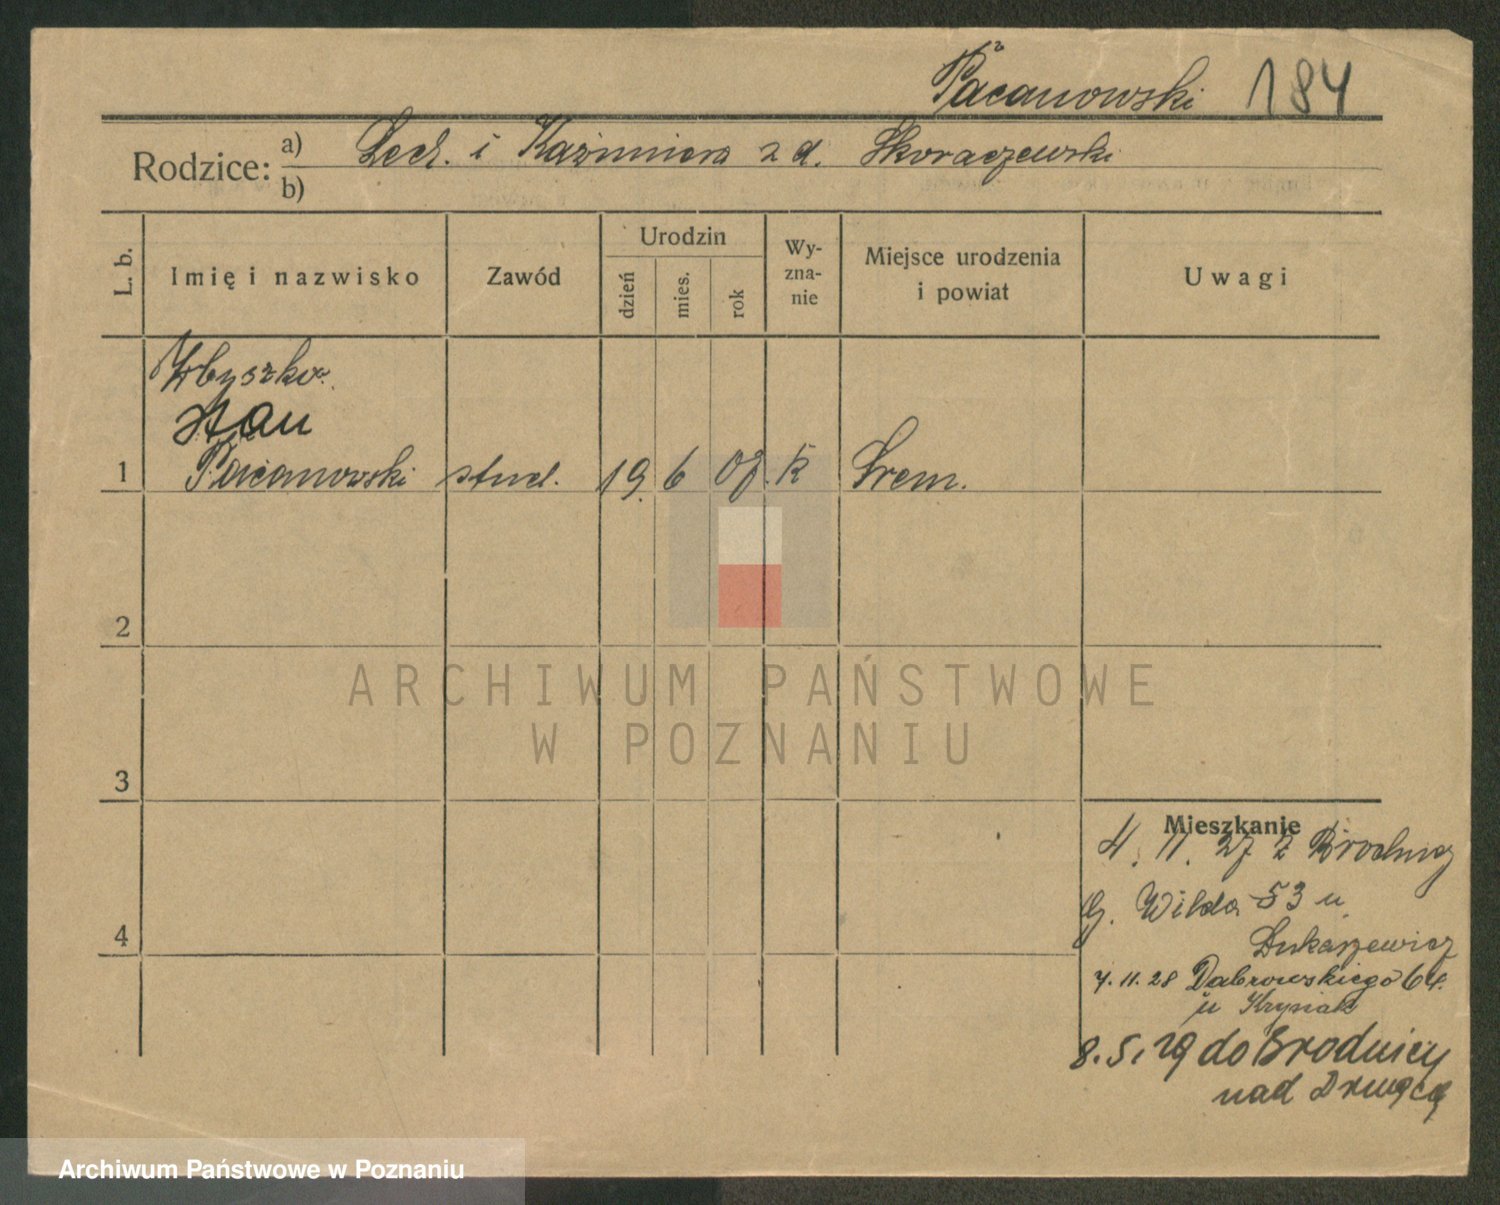 Pacanowski 184
Rodzice: a) Lech. i Kazimiera z d. Skoraczewski
b)
L. b. Imię i nazwisko Zawód Urodzin dzień mies. rok Wyznanie Miejsce urodzenia i powiat Uwagi
Zbyszko
Stan
1 Pacanowski stud. 19. 6 07. k Śrem.
2
3
4
Mieszkanie
4. 11. 27 z Brodnicy
G. Wilda 53 u
Łukaszewicz
7. 11. 28 Dąbrowskiego 64.
u Krysiak
8. 5. 29 do Brodnicy
nad Drwęcą
ARCHIWUM PAŃSTWOWE
W POZNANIU
Archiwum Państwowe w Poznaniu